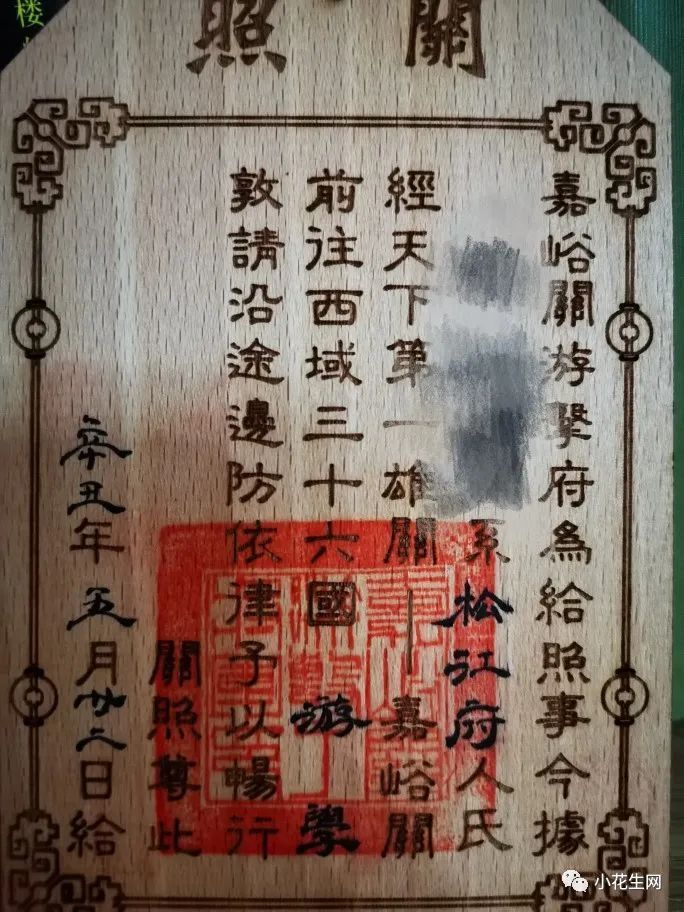 楼
關照
嘉峪關游擊府為給照事今據
系松江府人氏
經天下第一雄關—嘉峪關
前往西域三十六國游學
敦請沿途邊防依律予以暢行
關照尊此
辛丑年五月廿二日給
小花生网